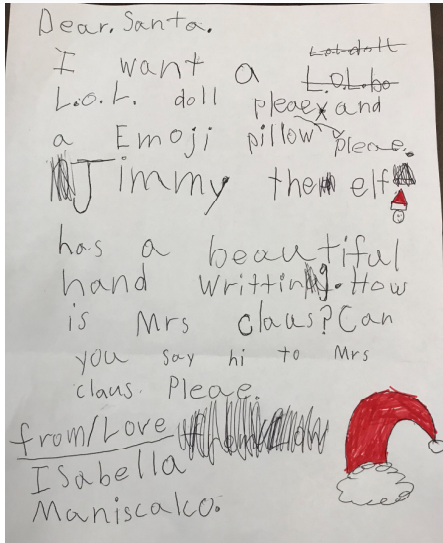 Dear. Santa.
L.o.L doll
I want a L.o.L.bo
L.o.L. doll pleaex and
a Emoji pillow pleae.
Jimmy the elf
has a beautiful
hand writting. How
is Mrs claus? Can
you say hi to Mrs
claus. Pleae.
from/Love
ISabella
Maniscalco.